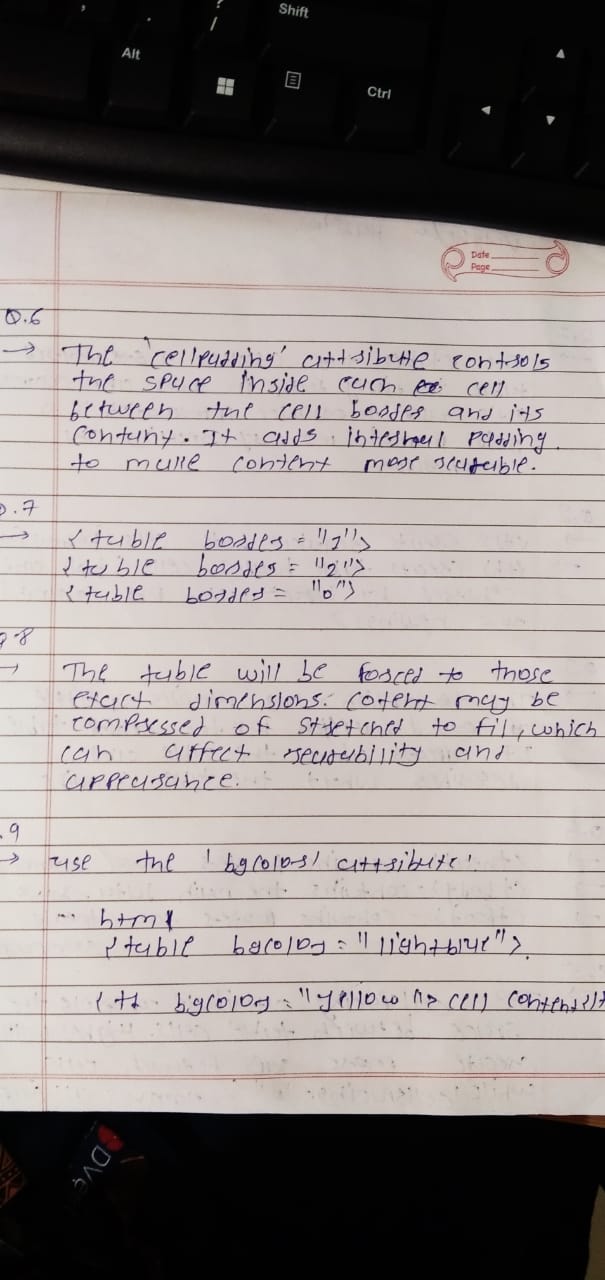 Shift
Alt
Ctrl
Date
Page
Q.6
→ The 'cellpadding' attribute controls
the space inside each cell
between the cell border and its
contunt. It adds internal padding
to make content more readable.
Q.7
→ <table border = "1">
<table border = "2">
<table border = "0">
Q.8
→ The table will be forced to those
exact dimensions. cotent may be
compressed of stretched to fil, which
can affect readability and
appearance.
.9
→ use the 'bgcolor' attribute'.
... html
<table bgcolor = "lightblue">
bgcolor = "yellow"> cell content
DVC